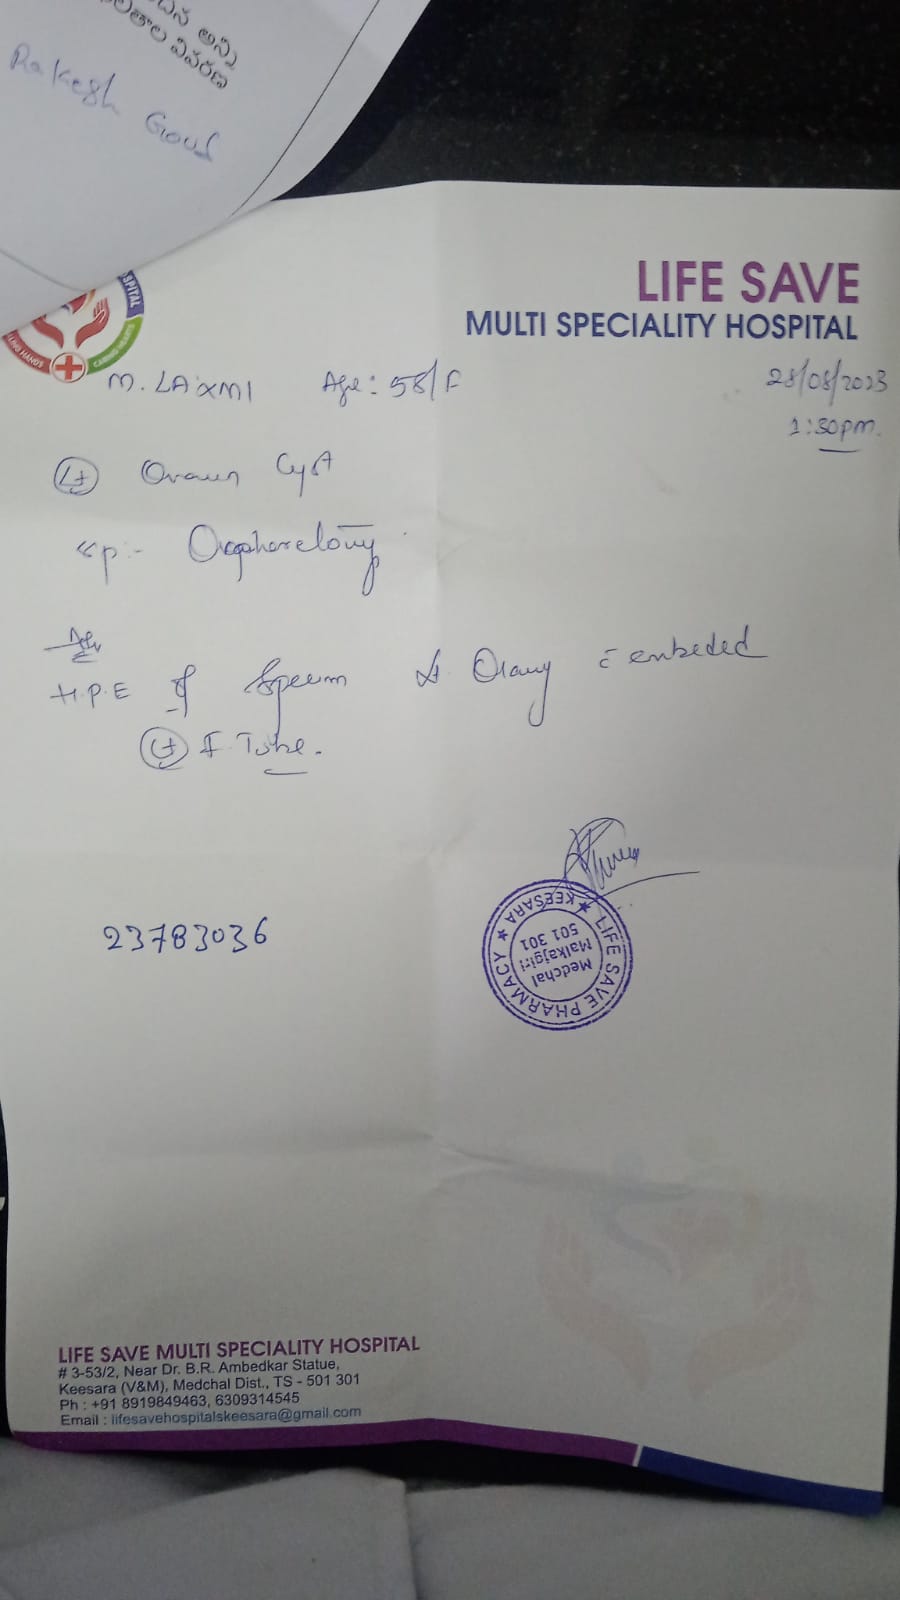 అన్ని
వివరణ
Rakesh Goud
LIFE SAVE
MULTI SPECIALITY HOSPITAL
SPITAL
CARING HEARTS
HANDS
M. LAXMI Age: 58/F 28/08/2023
1:30pm.
Lt Cyst
H.P.E of Lt. Ovary c̄ embeded
Lt F. Tube.
23783036
LIFE SAVE PHARMACY ★ KEESARA ★
Medchal
Malkajgiri
501 301
LIFE SAVE MULTI SPECIALITY HOSPITAL
# 3-53/2, Near Dr. B.R. Ambedkar Statue,
Keesara (V&M), Medchal Dist., TS - 501 301
Ph : +91 8919849463, 6309314545
Email : lifesavehospitalskeesara@gmail.com